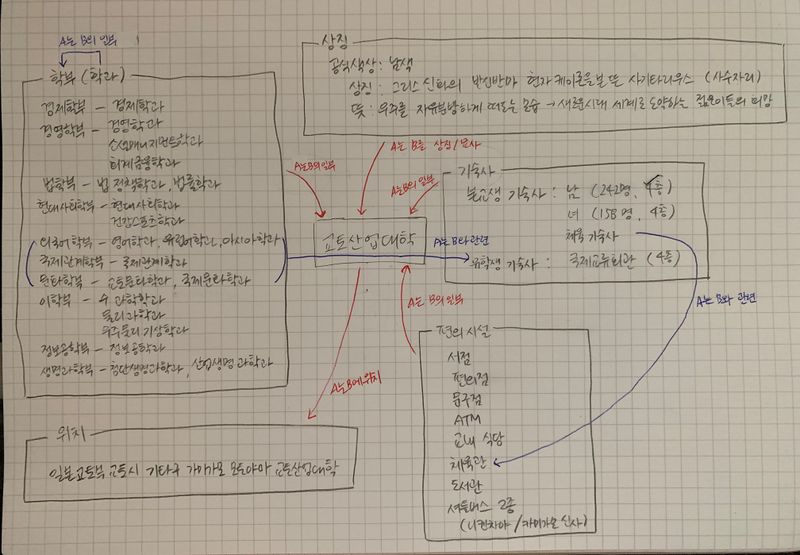 A는 B의 일부
학부 (학과)
경제학부 - 경제학과
경영학부 - 경영학과
소셜매니지먼트학과
회계금융학과
법학부 - 법 정책학과, 법률학과
현대사회학부 - 현대사회학과
건강스포츠학과
외국어학부 - 영어학과, 유럽어학과, 아시아학과
국제관계학부 - 국제관계학과
문화학부 - 교토문화학과, 국제문화학과
이학부 - 수 과학학과
물리과학과
우주물리 기상학과
정보공학부 - 정보공학과
생명과학부 - 첨단생명과학과, 산업생명과학과
위치
일본 교토부 교토시 기타구 가미가모 모토야마 교토산업대학
상징
공식색상 : 남색
상징 : 그리스 신화의 반신반마 현자 케이론을 본 뜬 사기타리우스 (사수자리)
뜻 : 우주를 자유분방하게 떠도는 모습 → 새로운시대 세계로 도약하는 젊은이들의 희망
A는 B를 상징/묘사
A는 B의 일부
A는 B의 일부
교토산업대학
A는 B와 관련
A는 B의 일부
A는 B에 위치
기숙사
본교생 기숙사 : 남 (242명, 4층)
녀 (158명, 4층)
체육 기숙사
유학생 기숙사 : 국제교류회관 (4층)
A는 B와 관련
편의 시설
서점
편의점
문구점
ATM
교내 식당
체육관
도서관
셔틀버스 2종
(니켄차야 / 카미가모 신사)